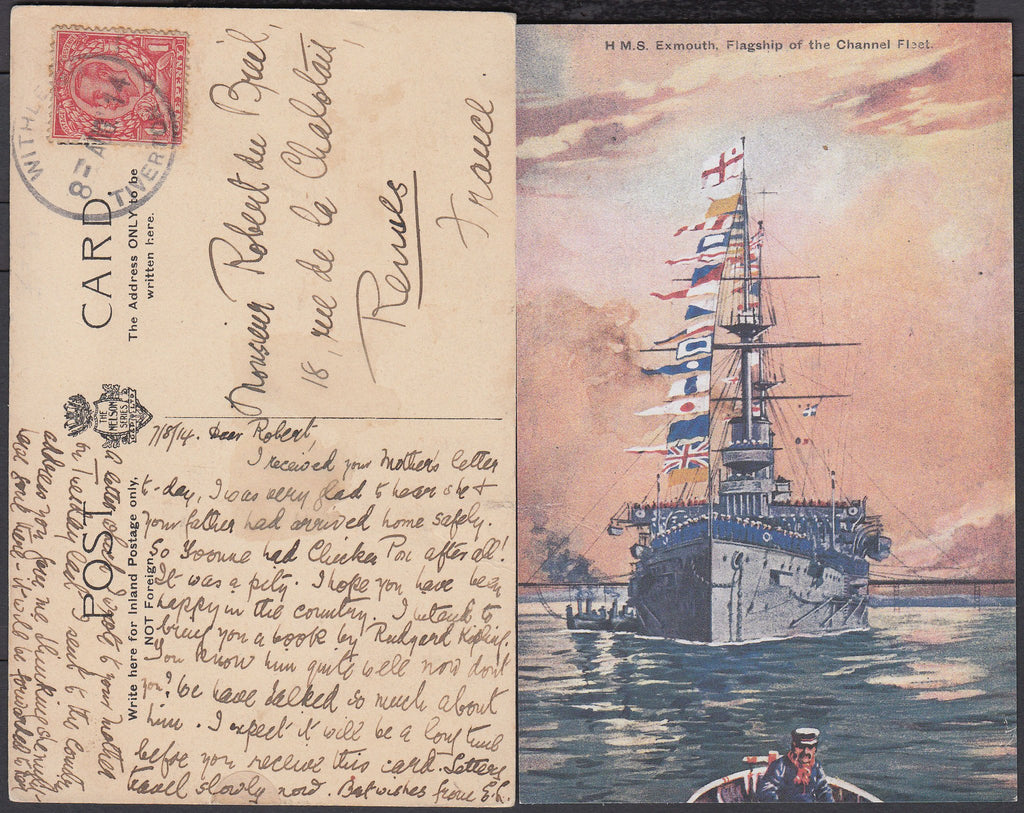 H M.S. Exmouth, Flagship of the Channel Fleet.
POST CARD.
THE
NELSON
SERIES
The Address ONLY to be
written here.
Write here for Inland Postage only,
NOT Foreign.
WITHLE
8
TIVER
Monsieur Robert du Briel,
18, rue de la Chalotais,
Rennes
France.
7/8/14. Dear Robert,
I received your Mother's letter
to-day, I was very glad to hear she &
your father had arrived home safely.
So Yvonne had Chicken Pox after all!
It was a pity. I hope you have been
happy in the country. I intend to
bring you a book by Rudyard Kipling.
You know him quite well now dont
you? We have talked so much about
him. I expect it will be a long time
before you receive this card. Letters
travel slowly now. Best wishes from E.L.
a letter & card I wrote to your mother
on Tuesday last I sent to the country
address you gave me thinking she might
be forwarded to her